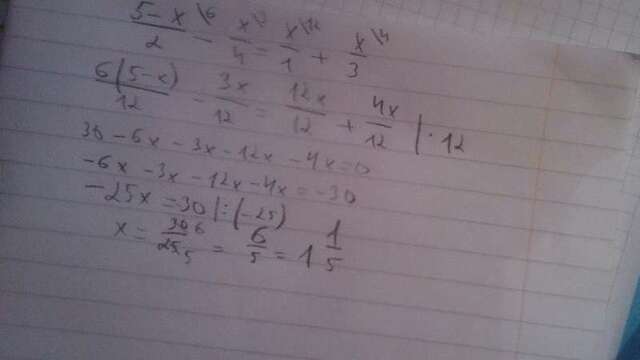 (5-x)/2 \6 - x/4 \3 = x/1 \12 + x/3 \4
6(5-x)/12 - 3x/12 = 12x/12 + 4x/12 | · 12
30 - 6x - 3x - 12x - 4x = 0
-6x - 3x - 12x - 4x = -30
-25x = 30 | : (-25)
x = 30 6/25 5 = 6/5 = 1 1/5